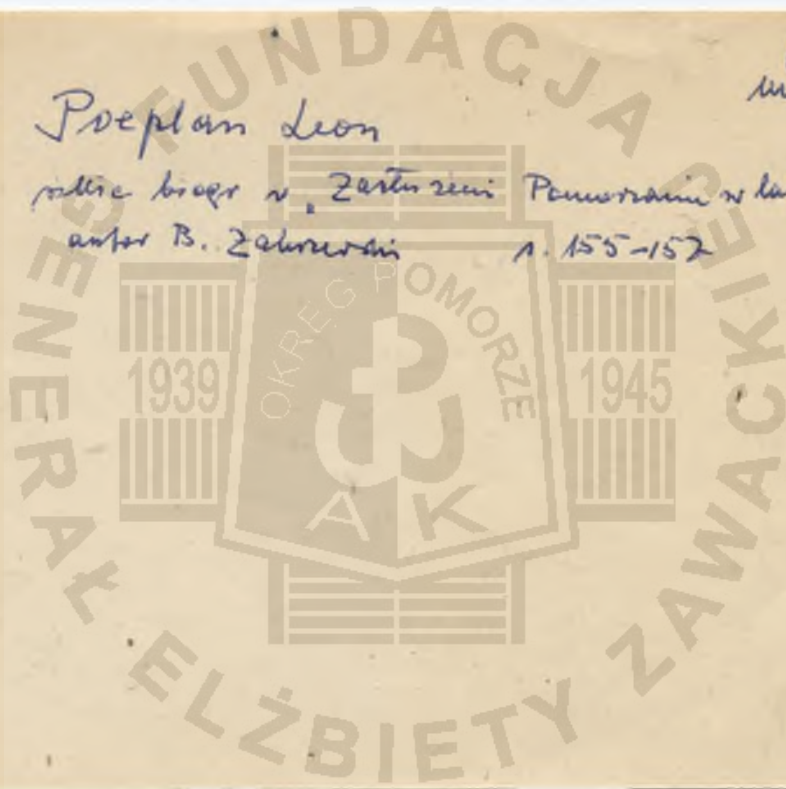 Poeplau Leon
szkic biogr w „Zasłużeni Pomorzanie w la
autor B. Zakrzewski s. 155-157
FUNDACJA GENERAŁ ELŻBIETY ZAWACKIEJ
OKRĘG POMORZE
1939 1945
AK